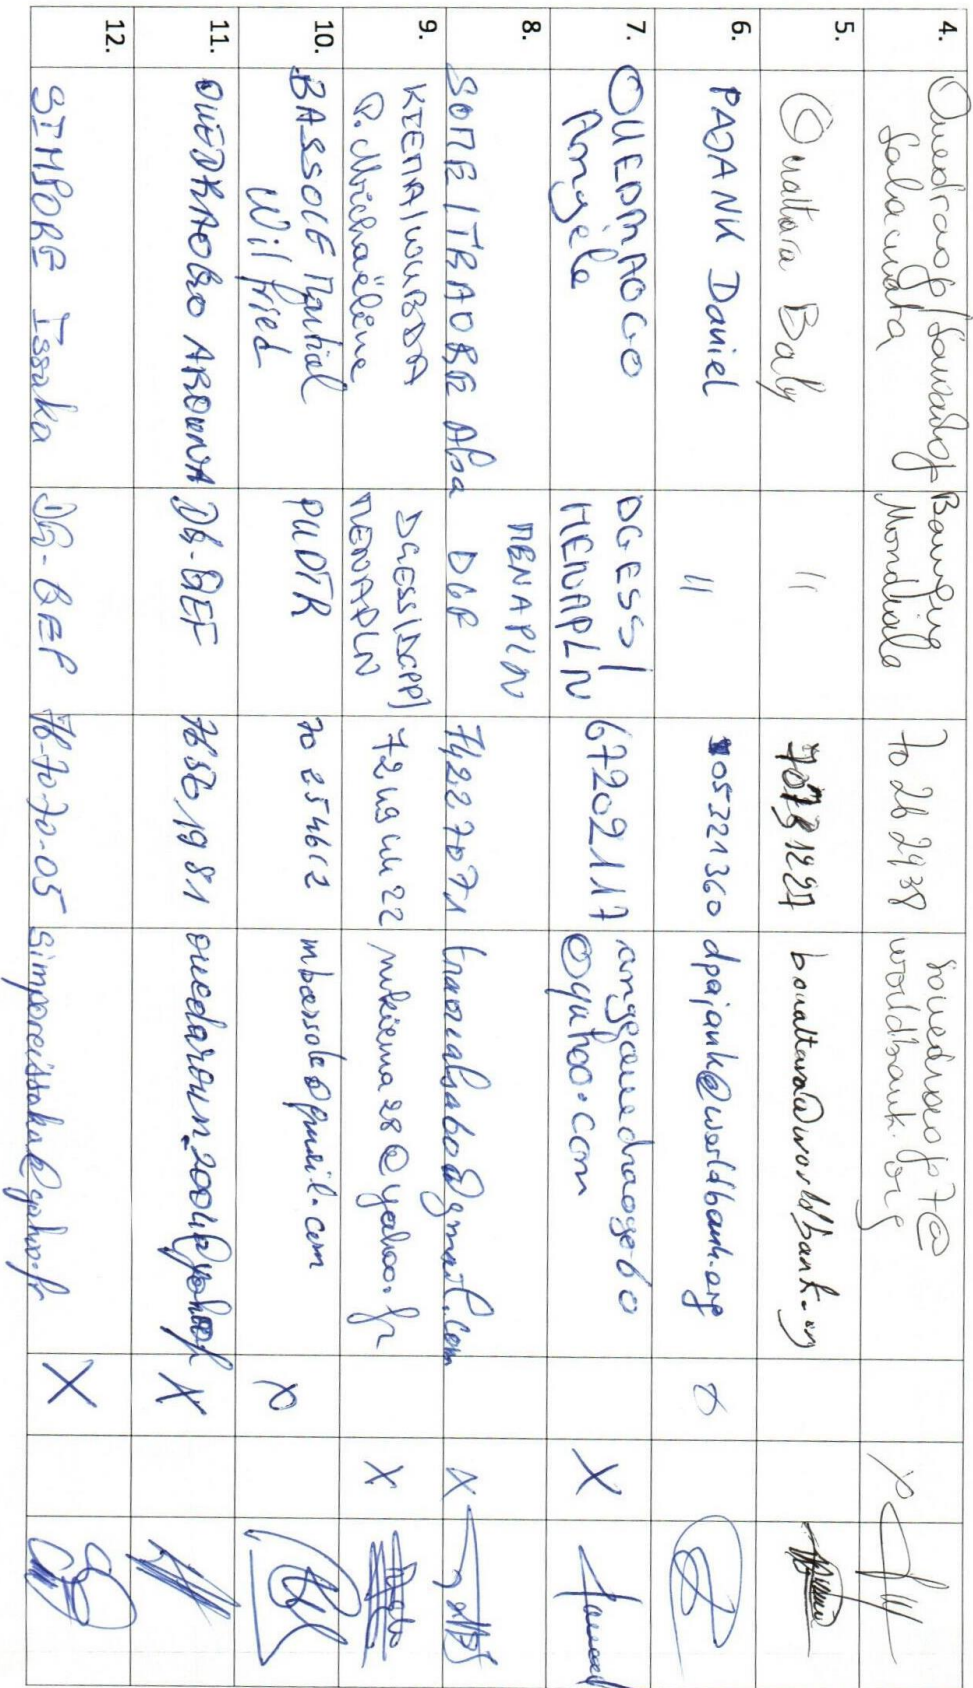 4.
Ouedraogo / Sawadogo
Salamata
Banque
Mondiale
70 26 24 38
souedraogo7@
worldbank.org
X
5.
Ouattara Baly
"
bouattara@worldbank.org
6.
PAJANK Daniel
"
05321360
dpajank@worldbank.org
7.
OUEDRAOGO
Angèle
DGESS/
MENAPLN
67202117
angeouedraogo60
@yahoo.com
X
8.
SOME/TRAORE Absa
DGP
MENAPLN
74227071
traorealsabo@gmail.com
X
9.
KIEMA/WUBDA
P. Michaëline
DGESS/DCPP/
MENAPLN
72 49 44 22
mkiema28@yahoo.fr
X
10.
BASSOLE Martial
Wilfried
PUDTR
70 254612
mbassole@gmail.com
X
11.
OUEDRAOGO AROUNA
DG-QEF
76561981
ouedaroun_2004@yahoo.fr
X
12.
SIMPORE Issaka
DG-QEF
76-70-70-05
simporeissaka@yahoo.fr
X